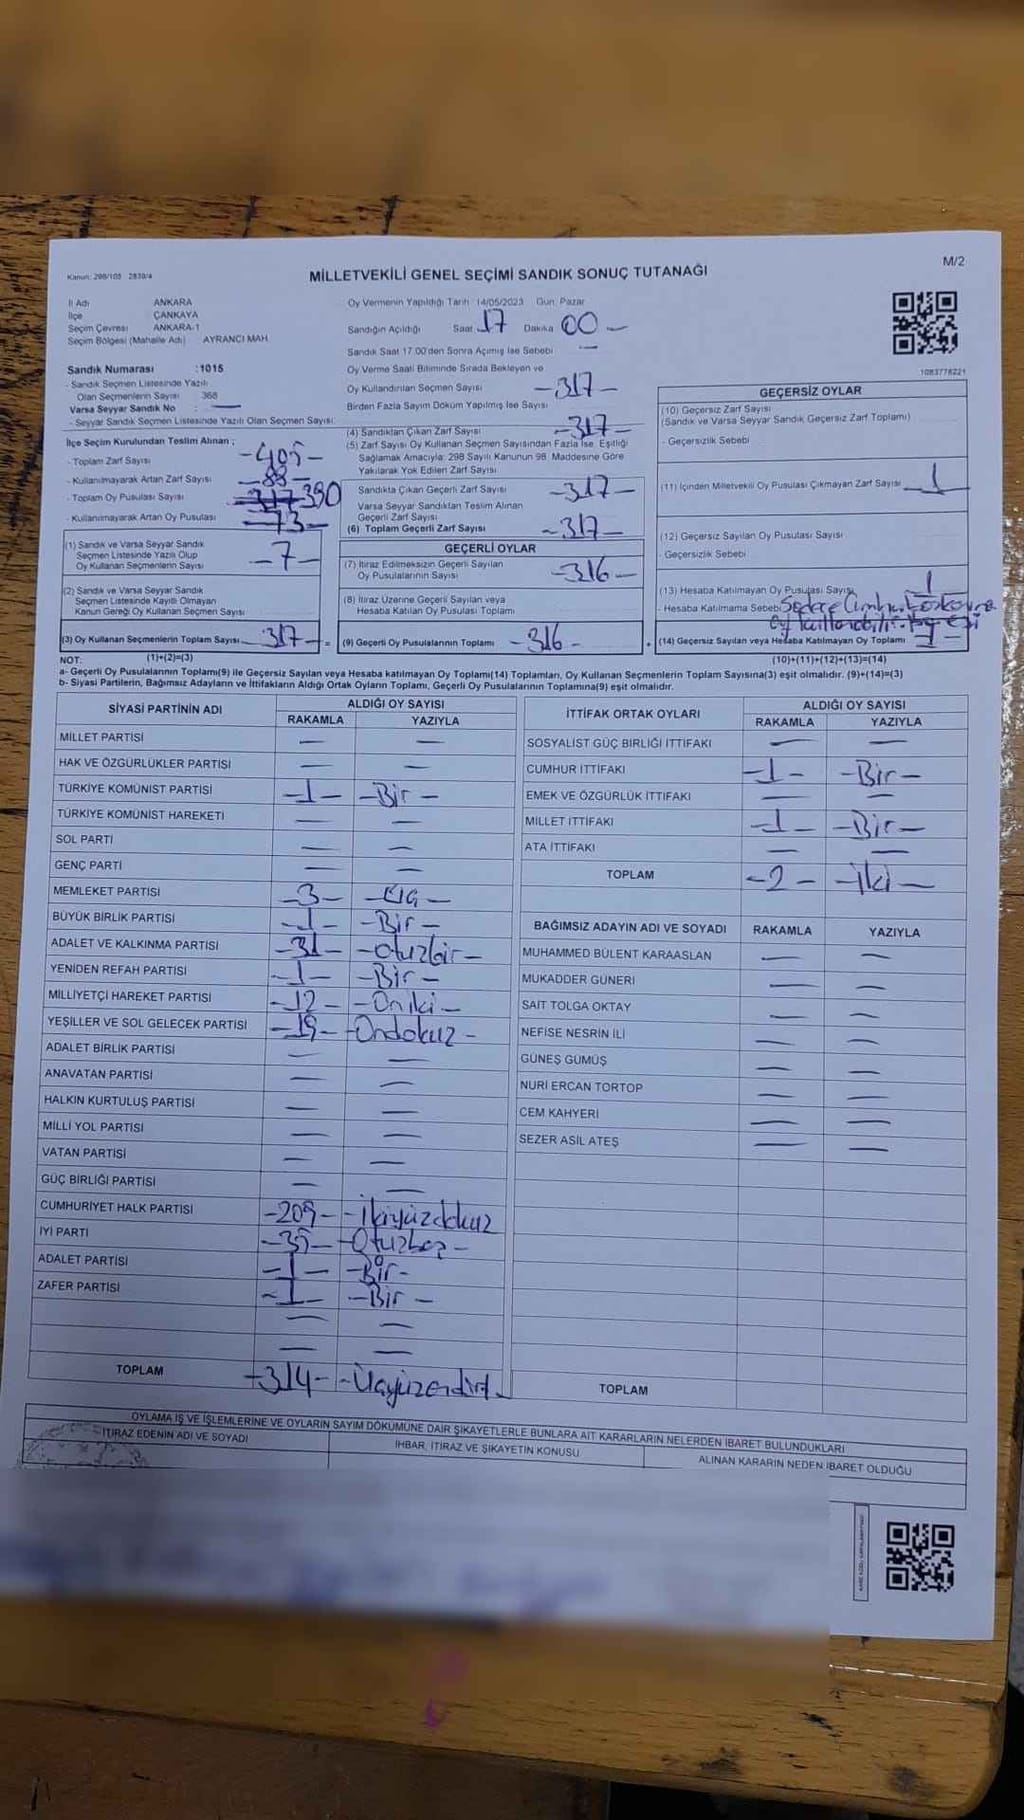 Kanun: 298/105 2839/4
MİLLETVEKİLİ GENEL SEÇİMİ SANDIK SONUÇ TUTANAĞI
M/2
İl Adı ANKARA
İlçe ÇANKAYA
Seçim Çevresi ANKARA-1
Seçim Bölgesi (Mahalle Adı) AYRANCI MAH
Oy Vermenin Yapıldığı Tarih 14/05/2023 Gün: Pazar
Sandığın Açıldığı Saat 17 Dakika 00 —
Sandık Saat 17.00'den Sonra Açılmış İse Sebebi —
1083778221
Sandık Numarası :1015
- Sandık Seçmen Listesinde Yazılı
Olan Seçmenlerin Sayısı 368
Varsa Seyyar Sandık No : —
- Seyyar Sandık Seçmen Listesinde Yazılı Olan Seçmen Sayısı:
İlçe Seçim Kurulundan Teslim Alınan ;
- Toplam Zarf Sayısı -405-
- Kullanılmayarak Artan Zarf Sayısı -88-
- Toplam Oy Pusulası Sayısı 317 390
- Kullanılmayarak Artan Oy Pusulası -73-
(1) Sandık ve Varsa Seyyar Sandık
Seçmen Listesinde Yazılı Olup
Oy Kullanan Seçmenlerin Sayısı -7-
(2) Sandık ve Varsa Seyyar Sandık
Seçmen Listesinde Kayıtlı Olmayan
Kanun Gereği Oy Kullanan Seçmen Sayısı
(3) Oy Kullanan Seçmenlerin Toplam Sayısı -317- =
(1)+(2)=(3)
Oy Verme Saati Bitiminde Sırada Bekleyen ve
Oy Kullandırılan Seçmen Sayısı -317-
Birden Fazla Sayım Döküm Yapılmış İse Sayısı
(4) Sandıktan Çıkan Zarf Sayısı -317-
(5) Zarf Sayısı Oy Kullanan Seçmen Sayısından Fazla İse, Eşitliği
Sağlamak Amacıyla; 298 Sayılı Kanunun 98. Maddesine Göre
Yakılarak Yok Edilen Zarf Sayısı
Sandıkta Çıkan Geçerli Zarf Sayısı -317-
Varsa Seyyar Sandıktan Teslim Alınan
Geçerli Zarf Sayısı
(6) Toplam Geçerli Zarf Sayısı -317-
GEÇERLİ OYLAR
(7) İtiraz Edilmeksizin Geçerli Sayılan
Oy Pusulalarının Sayısı -316-
(8) İtiraz Üzerine Geçerli Sayılan veya
Hesaba Katılan Oy Pusulası Toplamı
(9) Geçerli Oy Pusulalarının Toplamı -316- +
GEÇERSİZ OYLAR
(10) Geçersiz Zarf Sayısı
(Sandık ve Varsa Seyyar Sandık Geçersiz Zarf Toplamı)
- Geçersizlik Sebebi
(11) İçinden Milletvekili Oy Pusulası Çıkmayan Zarf Sayısı 1
(12) Geçersiz Sayılan Oy Pusulası Sayısı
- Geçersizlik Sebebi
(13) Hesaba Katılmayan Oy Pusulası Sayısı 1
- Hesaba Katılmama Sebebi Sadece
(14) Geçersiz Sayılan veya Hesaba Katılmayan Oy Toplamı 1
(10)+(11)+(12)+(13)=(14)
NOT:
a- Geçerli Oy Pusulalarının Toplamı(9) ile Geçersiz Sayılan veya Hesaba katılmayan Oy Toplamı(14) Toplamları, Oy Kullanan Seçmenlerin Toplam Sayısına(3) eşit olmalıdır. (9)+(14)=(3)
b- Siyasi Partilerin, Bağımsız Adayların ve İttifakların Aldığı Ortak Oyların Toplamı, Geçerli Oy Pusulalarının Toplamına(9) eşit olmalıdır.
SİYASİ PARTİNİN ADI ALDIĞI OY SAYISI
RAKAMLA YAZIYLA
MİLLET PARTİSİ — —
HAK VE ÖZGÜRLÜKLER PARTİSİ — —
TÜRKİYE KOMÜNİST PARTİSİ -1- -Bir-
TÜRKİYE KOMÜNİST HAREKETİ — —
SOL PARTİ — —
GENÇ PARTİ — —
MEMLEKET PARTİSİ -3- -Üç-
BÜYÜK BİRLİK PARTİSİ -1- -Bir-
ADALET VE KALKINMA PARTİSİ -31- -otuzbir-
YENİDEN REFAH PARTİSİ -1- -Bir-
MİLLİYETÇİ HAREKET PARTİSİ -12- -Oniki-
YEŞİLLER VE SOL GELECEK PARTİSİ -19- -Ondokuz-
ADALET BİRLİK PARTİSİ — —
ANAVATAN PARTİSİ — —
HALKIN KURTULUŞ PARTİSİ — —
MİLLİ YOL PARTİSİ — —
VATAN PARTİSİ — —
GÜÇ BİRLİĞİ PARTİSİ — —
CUMHURİYET HALK PARTİSİ -209- -ikiyüzdokuz
İYİ PARTİ -35- -Otuzbeş-
ADALET PARTİSİ -1- -Bir-
ZAFER PARTİSİ -1- -Bir-
— —
— —
TOPLAM -314- -Üçyüzondört-
İTTİFAK ORTAK OYLARI ALDIĞI OY SAYISI
RAKAMLA YAZIYLA
SOSYALİST GÜÇ BİRLİĞİ İTTİFAKI — —
CUMHUR İTTİFAKI -1- -Bir-
EMEK VE ÖZGÜRLÜK İTTİFAKI — —
MİLLET İTTİFAKI -1- -Bir-
ATA İTTİFAKI — —
TOPLAM -2- -iki-
BAĞIMSIZ ADAYIN ADI VE SOYADI RAKAMLA YAZIYLA
MUHAMMED BÜLENT KARAASLAN — —
MUKADDER GÜNERİ — —
SAİT TOLGA OKTAY — —
NEFİSE NESRİN İLİ — —
GÜNEŞ GÜMÜŞ — —
NURİ ERCAN TORTOP — —
CEM KAHYERİ — —
SEZER ASİL ATEŞ — —
TOPLAM
OYLAMA İŞ VE İŞLEMLERİNE VE OYLARIN SAYIM DÖKÜMÜNE DAİR ŞİKAYETLERLE BUNLARA AİT KARARLARIN NELERDEN İBARET BULUNDUKLARI
İTİRAZ EDENİN ADI VE SOYADI İHBAR, İTİRAZ VE ŞİKAYETİN KONUSU ALINAN KARARIN NEDEN İBARET OLDUĞU